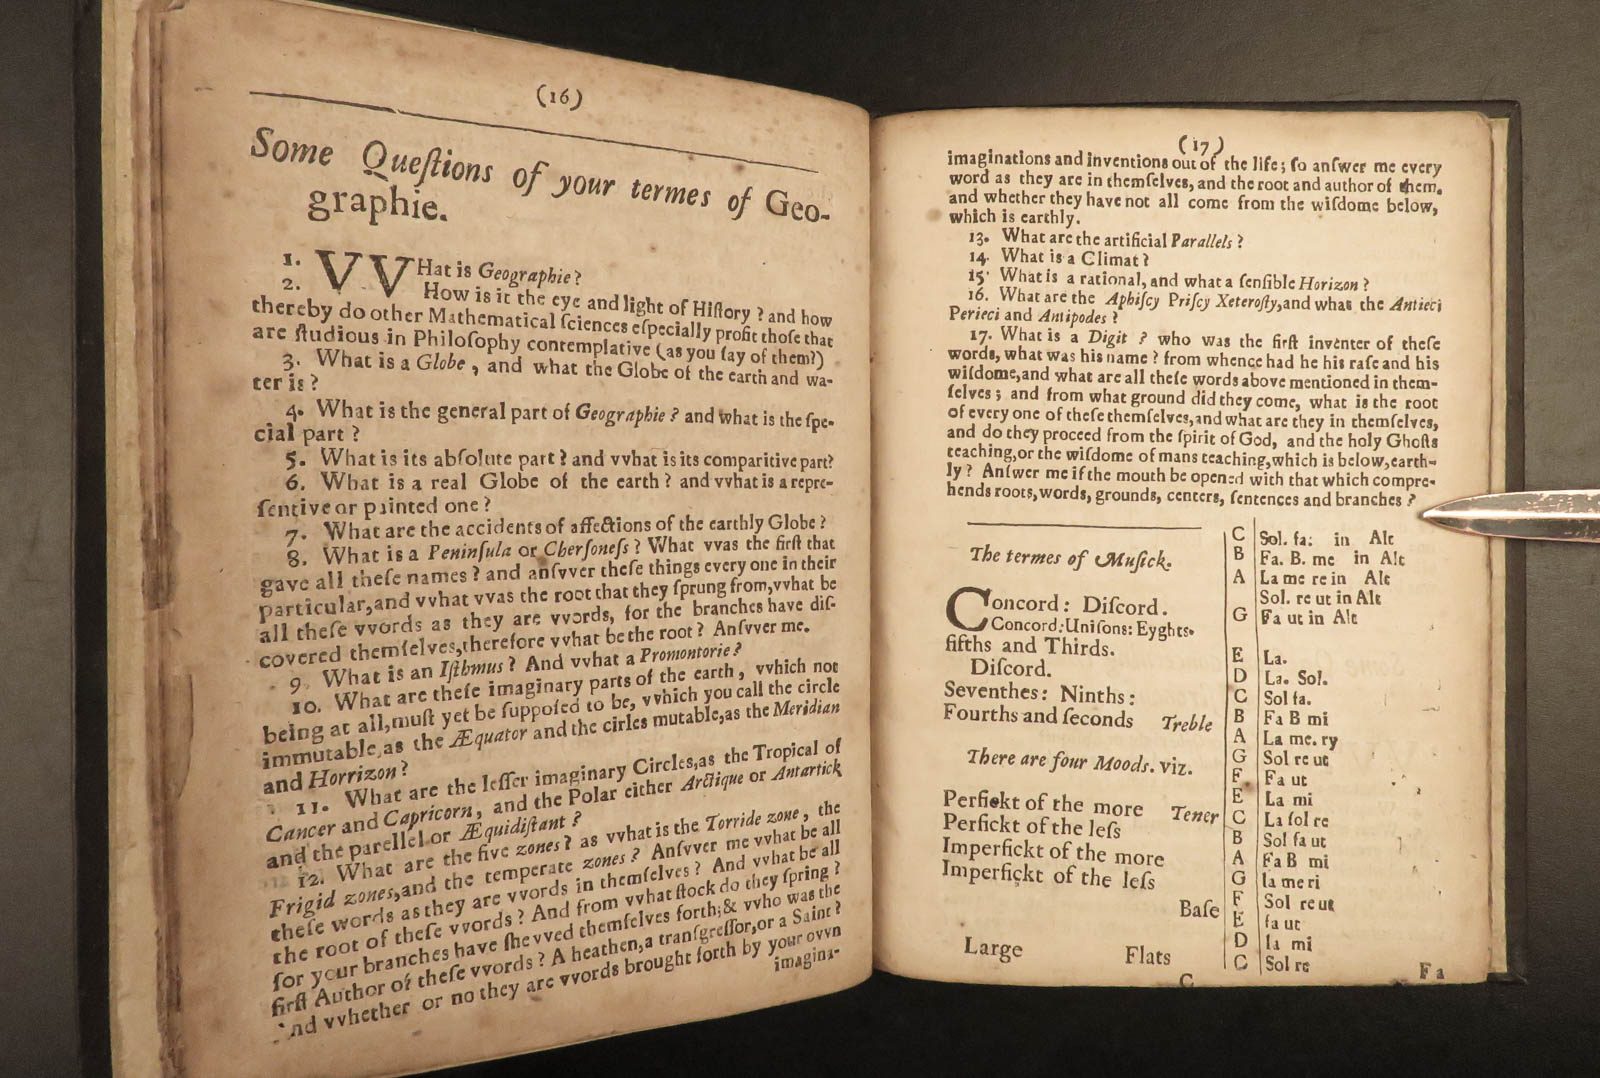 (16)
Some Queſtions of your termes of Geo-
graphie.
1. VVHat is Geographie?
2. How is it the eye and light of Hiſtory? and how
thereby do other Mathematical ſciences eſpecially profit thoſe that
are ſtudious in Philoſophy contemplative (as you ſay of them?)
3. What is a Globe, and what the Globe of the earth and wa-
ter is?
4. What is the general part of Geographie? and what is the ſpe-
cial part?
5. What is its abſolute part? and vvhat is its comparitive part?
6. What is a real Globe of the earth? and vvhat is a repre-
ſentive or painted one?
7. What are the accidents of affections of the earthly Globe?
8. What is a Peninſula or Cherſoneſs? What vvas the firſt that
gave all theſe names? and anſvver theſe things every one in their
particular, and vvhat vvas the root that they ſprung from, vvhat be
all theſe vvords as they are vvords, for the branches have diſ-
covered themſelves, therefore vvhat be the root? Anſvver me.
9. What is an Iſthmus? And vvhat a Promontorie?
10. What are theſe imaginary parts of the earth, vvhich not
being at all, muſt yet be ſuppoſed to be, vvhich you call the circle
immutable, as the Æquator and the cirles mutable, as the Meridian
and Horrizon?
11. What are the leſſer imaginary Circles, as the Tropical of
Cancer and Capricorn, and the Polar either Arctique or Antartick
and the parellel or Æquidiſtant?
12. What are the five zones? as vvhat is the Torride zone, the
Frigid zones, and the temperate zones? Anſvver me vvhat be all
theſe words as they are vvords in themſelves? And vvhat be all
the root of theſe vvords? And from vvhat ſtock do they ſpring?
for your branches have ſhevved themſelves forth; & vvho was the
firſt Author of theſe vvords? A heathen, a tranſgreſſor, or a Saint?
And vvhether or no they are vvords brought forth by your ovvn
imagina-
(17)
imaginations and inventions out of the life; ſo anſwer me every
word as they are in themſelves, and the root and author of them.
and whether they have not all come from the wiſdome below,
which is earthly.
13. What are the artificial Parallels?
14. What is a Climat?
15. What is a rational, and what a ſenſible Horizon?
16. What are the Aphiſcy Priſcy Xeteroſty, and what the Antieci
Perieci and Antipodes?
17. What is a Digit? who was the firſt inventer of theſe
words, what was his name? from whence had he his raſe and his
wiſdome, and what are all theſe words above mentioned in them-
ſelves; and from what ground did they come, what is the root
of every one of theſe themſelves, and what are they in themſelves,
and do they proceed from the ſpirit of God, and the holy Ghoſts
teaching, or the wiſdome of mans teaching, which is below, earth-
ly? Anſwer me if the mouth be opened with that which compre-
hends roots, words, grounds, centers, ſentences and branches?
The termes of Muſick.
Concord: Diſcord.
Concord: Uniſons: Eyghts.
fifths and Thirds.
Diſcord.
Seventhes: Ninths:
Fourths and ſeconds
There are four Moods. viz.
Perfickt of the more
Perfickt of the leſs
Imperfickt of the more
Imperfickt of the leſs
Large Flats
Treble
Tener
Baſe
C Sol. fa: in Alt
B Fa. B. me in Alt
A La me re in Alt
Sol. re ut in Alt
G Fa ut in Alt
E La.
D La. Sol.
C Sol fa.
B Fa B mi
A La me. ry
G Sol re ut
F Fa ut
E La mi
C La ſol re
B Sol fa ut
A Fa B mi
G la me ri
F Sol re ut
E fa ut
D la mi
C Sol re
C Fa